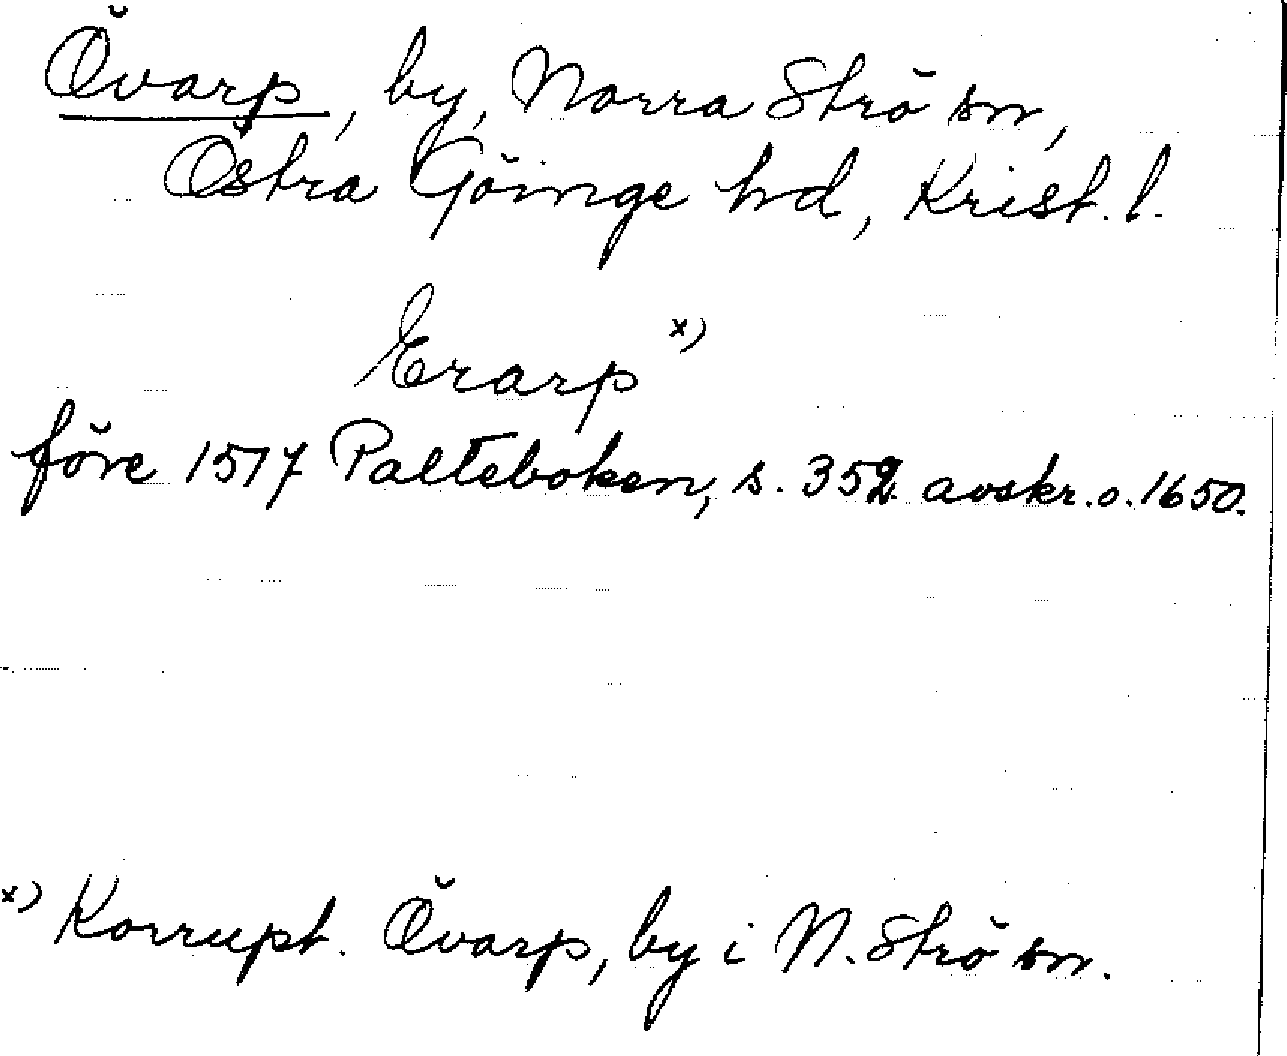 Övarp, by, Norra Strö sn,
Östra Göinge hd, Krist. l.
Erarp x)
före 1517 Palteboken, s. 352 avskr. o. 1650.
x) Korrupt. Övarp, by i N. Strö sn.